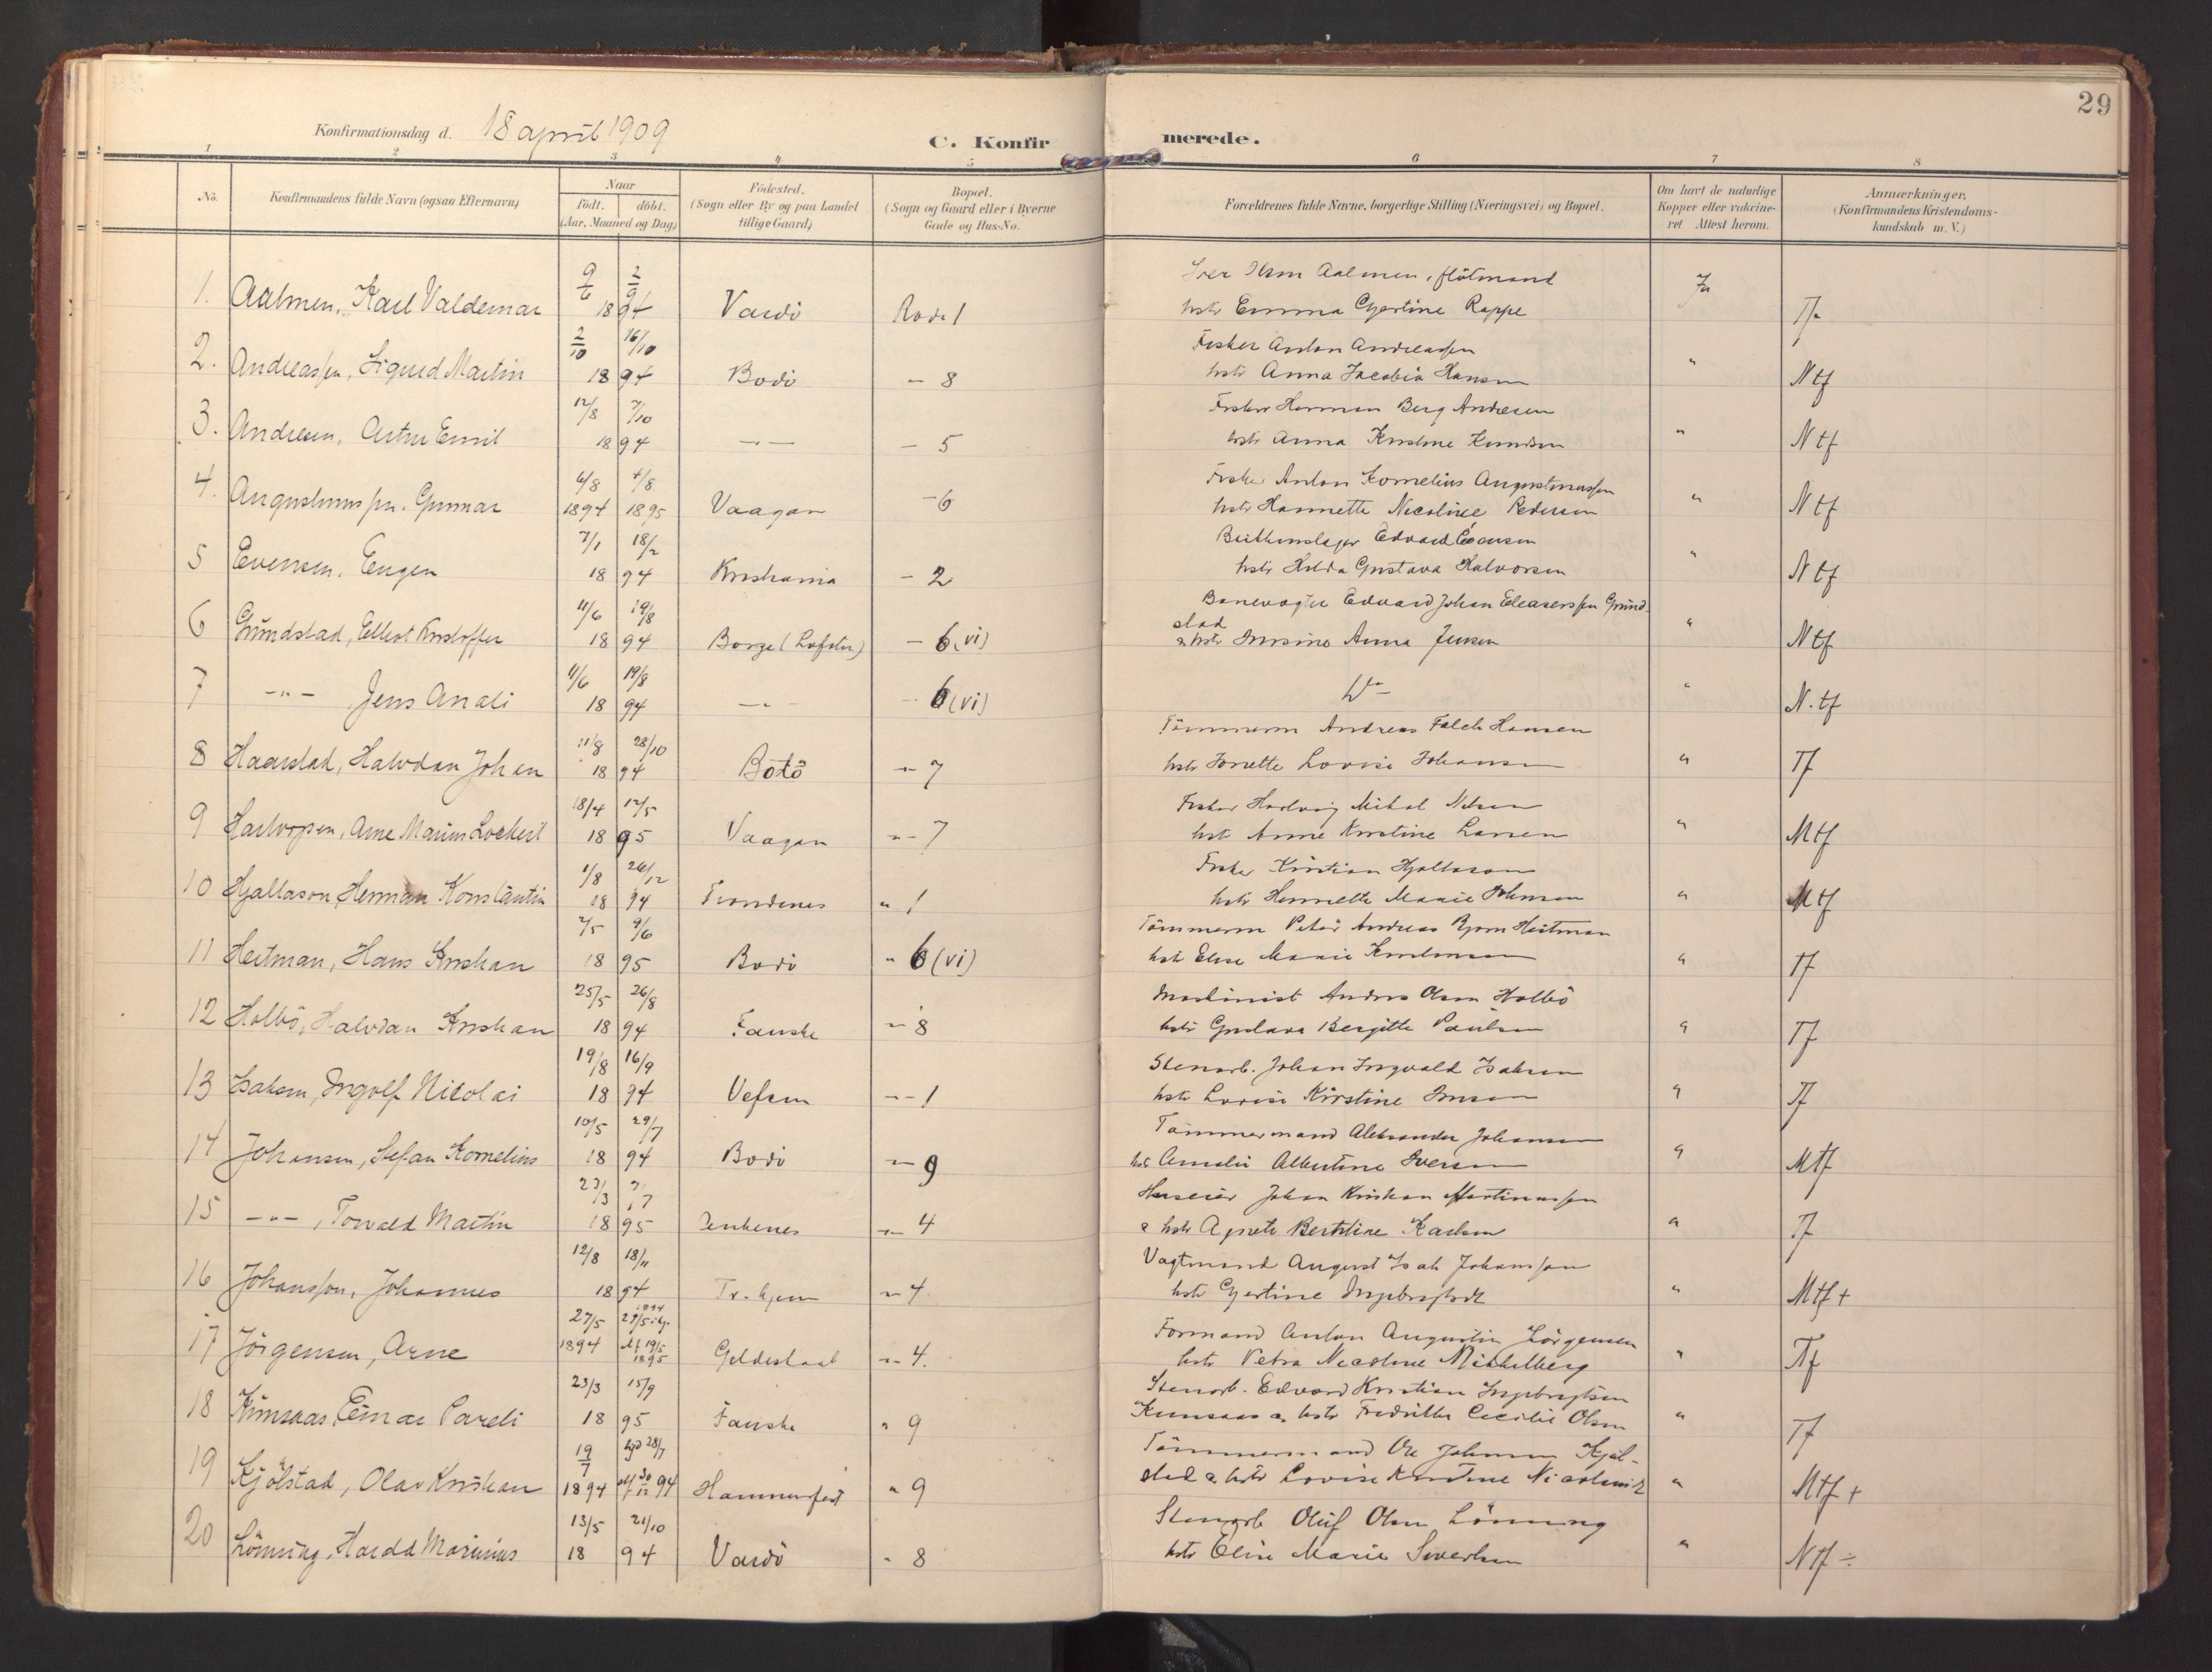 29
Konfirmationsdag d. 18 april 1909
C. Konfirmerede.
1 2 3 4 5 6 7 8
No.
Konfirmandens fulde Navn (ogsaa Efternavn)
Naar
födt. döbt.
(Aar, Maaned og Dag)
Födested.
(Sogn eller By og paa Landet
tillige Gaard)
Bopæl.
(Sogn og Gaard eller i Byerne
Gade og Hus-No.
Forældrenes fulde Navne, borgerlige Stilling (Næringsvei) og Bopæl.
Om havt de naturlige
Kopper eller vakcine-
ret Attest herom.
Anmærkninger,
(Konfirmandens Kristendoms-
kundskab m. V.)
1. Aalmen, Karl Valdemar 9/6 2/9 1894 Vardö Rode 1
Aalmen, flötmand
hstr Emma Gjertine Rappe Ja Tf.
2. Andreassen, Sigurd Martin 2/10 16/10 1894 Bodö - 8
Fisker Anton Andreassen
hstr Anna Jacobia Hansen " Ntf
3. Andresen, Artur Emil 12/8 7/10 1894 -"- - 5
Fisker Herman Berg Andresen
hstr Anna Kristine Knudsen " Ntf
4. Augustinussen, Gunnar 6/8 4/8 1894 1895 Vaagan - 6
Fisker Anton Kornelius Augustinussen
hstr Hannette Nicoline Pedersen " Ntf
5 Evensen, Eugen 7/1 18/2 1894 Kristiania - 2
Edvard Evensen
hstr Hilda Gustava Halvorsen " Ntf
6 Grundstad, Ellert Kristoffer 11/6 19/8 1894 Borge (Lofoten) - 6 (vi)
Banevogter Edvard Johan Eleaserssen Grund-
stad
& hstr Anna Jensen " Ntf
7 -"- Jens Anali 11/6 19/8 1894 -"- - 6 (vi)
Do " N.tf
8 Haarstad, Halvdan Johan 11/8 28/10 1894 Bodö -"- 7
Tömmerm Andreas Falch Hansen
hstr Lovise Johansen " Tf
9 Hartvigsen, Arne Marius Lockert 18/4 12/5 1895 Vaagan -"- 7
Fisker Hartvig Mikal Nilsen
hstr Anne Kristine Larsen " Mtf
10 Hjaltason, Herman Konstantin 1/8 26/12 1894 Trondenes " 1
Fisker Kristian Hjaltason
hstr Hennette Marie Johnsen " Mtf
11 Heitman, Hans Kristian 7/5 9/6 1895 Bodö " 6 (vi)
Tömmerm Peter Andreas Bjorn Heitman
hstr Elise Marie " Tf
12 Holbö, Halvdan Kristian 25/5 26/8 1894 Fauske -"- 8
Maskinist Anders Olsen Holbö
hstr Gustava Bergitte Paulsen " Tf
13 Isaksen, Ingolf Nikolai 19/8 16/9 1894 Vefsen -"- 1
Stenarb. Johan Ingvald Isaksen
hstr Lovise Kirstine " Tf
14 Johansen, Stefan Kornelius 10/5 29/7 1894 Bodö -"- 9
Tömmermand Aleksander Johansen
hstr Amalie Albertine Iversen " Mtf
15 -"-, Torvald Martin 23/3 7/7 1895 -"- 4
Huseier Johan Kristian Martinussen
& hstr Agnete Berntine Karlsen " Tf
16 Johanssen, Johannes 12/8 18/11 1894 Tr.hjem -"- 4
Vagtmand August Isak Johanssen
hstr Gjertine " Mtf +
17 Jörgensen, Arne 27/5 1894 27/5 1894 19/5 1895 Gildeskaal -"- 4.
Formand Anton Augustin Jörgensen
hstr Petra Nicoline Mikkelberg " Tf
18 Kunsaas, Einar Pareli 23/3 15/9 1895 Fauske " 9
Stenarb. Edvard Kristian Ingebrigtsen
Kunsaas & hstr Fredrikke Cecilie Olsen " Tf
19 Kjölstad, Olav Kristian 19/7 1894 28/7 30/12 94 Hammerfest " 9
Tömmermand Ole Johnsen Kjöl-
stad & hstr Lovise " Mtf +
20 Lönning, Harald Marinius 13/5 21/10 1894 Vardö " 8
Stenarb Oluf Olsen Lönning
hstr Eline Marie Sivertsen " Ntf ÷